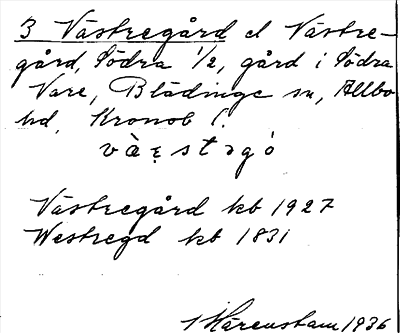 3 Västregård el Västre-
gård, Södra 1/2, gård i Södra
Vare, Blädinge sn, Allbo
hd, Kronob l.
väɛ̣stəgó
Västregård kb 1927
Westregd kb 1831
Härenstam 1936